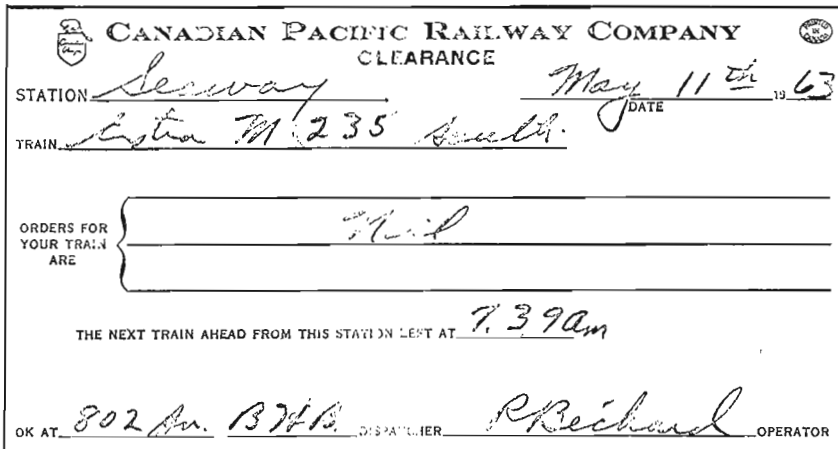 CANADIAN PACIFIC RAILWAY COMPANY
PRINTED IN CANADA
CLEARANCE
STATION Seaway May 11th 1963
DATE
TRAIN Extra M 235 South.
ORDERS FOR YOUR TRAIN ARE Nil
THE NEXT TRAIN AHEAD FROM THIS STATION LEFT AT 7.39am
OK AT 802 Am. BHB DISPATCHER R Bechard OPERATOR